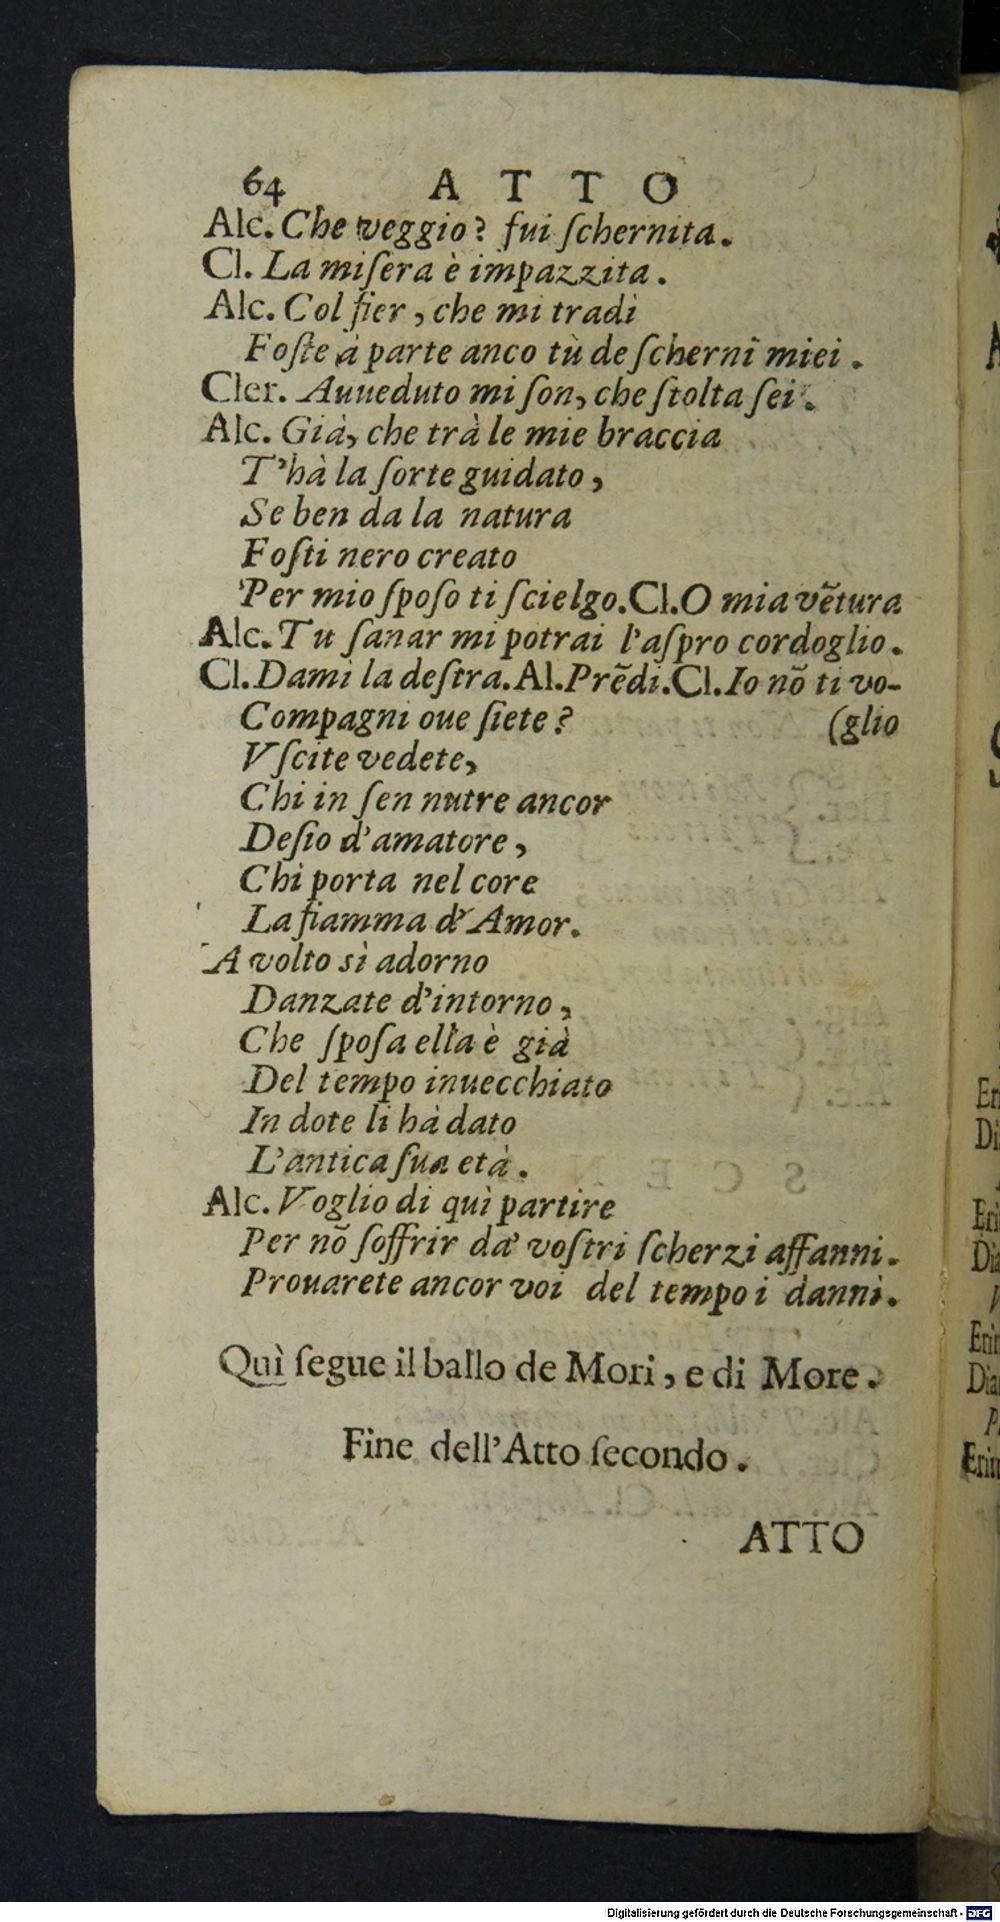 64 ATTO
Alc. Che veggio? fui ſchernita.
Cl. La miſera è impazzita.
Alc. Col fier, che mi tradì
Foſte à parte anco tù de ſcherni miei.
Cler. Auueduto mi ſon, che ſtolta ſei.
Alc. Già, che trà le mie braccia
T'hà la ſorte guidato,
Se ben da la natura
Foſti nero creato
Per mio ſpoſo ti ſcielgo. Cl. O mia vẽtura
Alc. Tu ſanar mi potrai l'aſpro cordoglio.
Cl. Dami la deſtra. Al. Prẽdi. Cl. Io nõ ti vo-
Compagni oue ſiete? (glio
Vſcite vedete,
Chi in ſen nutre ancor
Deſio d'amatore,
Chi porta nel core
La fiamma d'Amor.
A volto sì adorno
Danzate d'intorno,
Che ſpoſa ella è già
Del tempo inuecchiato
In dote li hà dato
L'antica ſua età.
Alc. Voglio di quì partire
Per nõ ſoffrir da' voſtri ſcherzi affanni.
Prouarete ancor voi del tempo i danni.
Quì ſegue il ballo de Mori, e di More.
Fine dell'Atto ſecondo.
ATTO
Digitalisierung gefördert durch die Deutsche Forschungsgemeinschaft - DFG